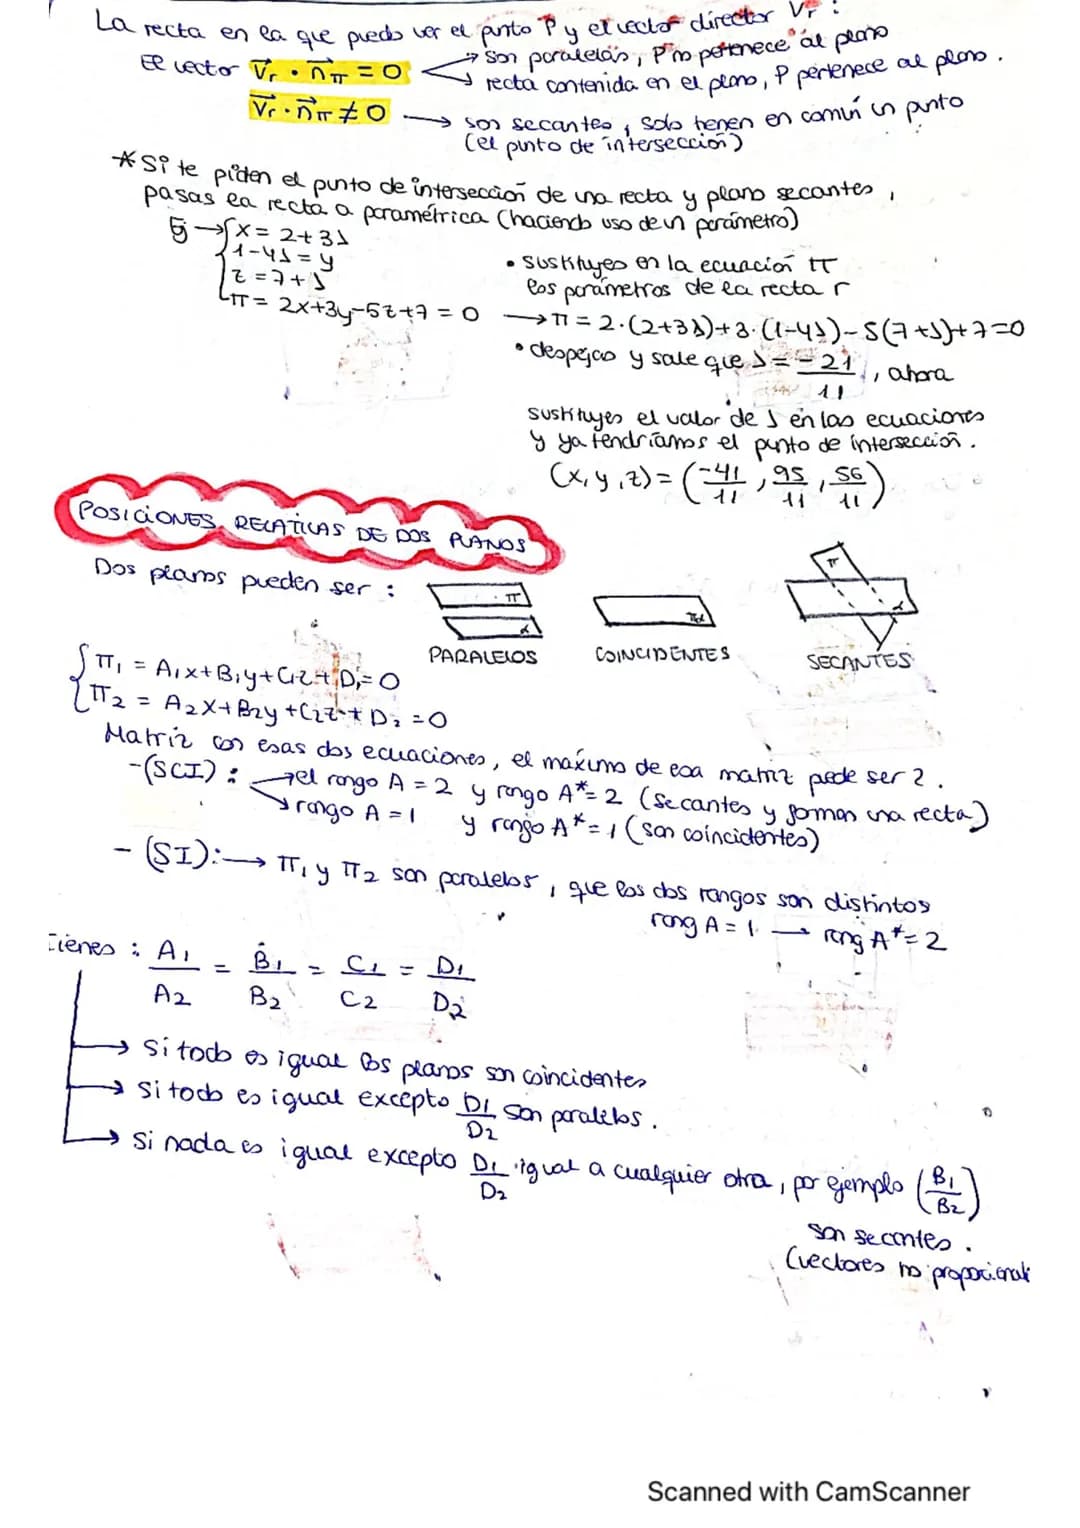 La recta en la que puedo ver el punto P y el vector director Vr :
El vector Vr · nπ = 0 → son paralelas, P no pertenece al plano
→ recta contenida en el plano, P pertenece al plano.
Vr · nπ ≠ 0 → son secantes, solo tienen en común un punto
(el punto de intersección)
* Si te piden el punto de intersección de una recta y plano secantes,
pasas la recta a paramétrica (haciendo uso de un parámetro)
Ej → x = 2+3λ
1-4λ = y
z = 7+λ
π = 2x+3y-5z+7 = 0
• sustituyes en la ecuación π
los parámetros de la recta r
→ π = 2·(2+3λ)+3·(1-4λ)-5(7+λ)+7=0
• despejas y sale que λ = -21/11, ahora
sustituyes el valor de λ en las ecuaciones
y ya tendríamos el punto de intersección.
(x, y, z) = (-41/11, 95/11, 56/11)
POSICIONES RELATIVAS DE DOS PLANOS
Dos planos pueden ser :
π
α
PARALELOS
πα
COINCIDENTES
π
α
SECANTES
π1 = A1x+B1y+C1z+D1=0
π2 = A2x+B2y+C2z+D2=0
Matriz con esas dos ecuaciones, el máximo de esa matriz puede ser 2.
-(SCI): → el rango A = 2 y rango A*= 2 (secantes y forman una recta)
→ rango A = 1 y rango A*= 1 (son coincidentes)
- (SI): → π1 y π2 son paralelos, que los dos rangos son distintos
rang A = 1 → rang A*= 2
Tienes : A1/A2 = B1/B2 = C1/C2 = D1/D2
→ si todo es igual los planos son coincidentes
→ si todo es igual excepto D1/D2 son paralelos.
→ si nada es igual excepto D1/D2 igual a cualquier otra, por ejemplo (B1/B2)
son secantes.
(vectores no proporcionali
Scanned with CamScanner